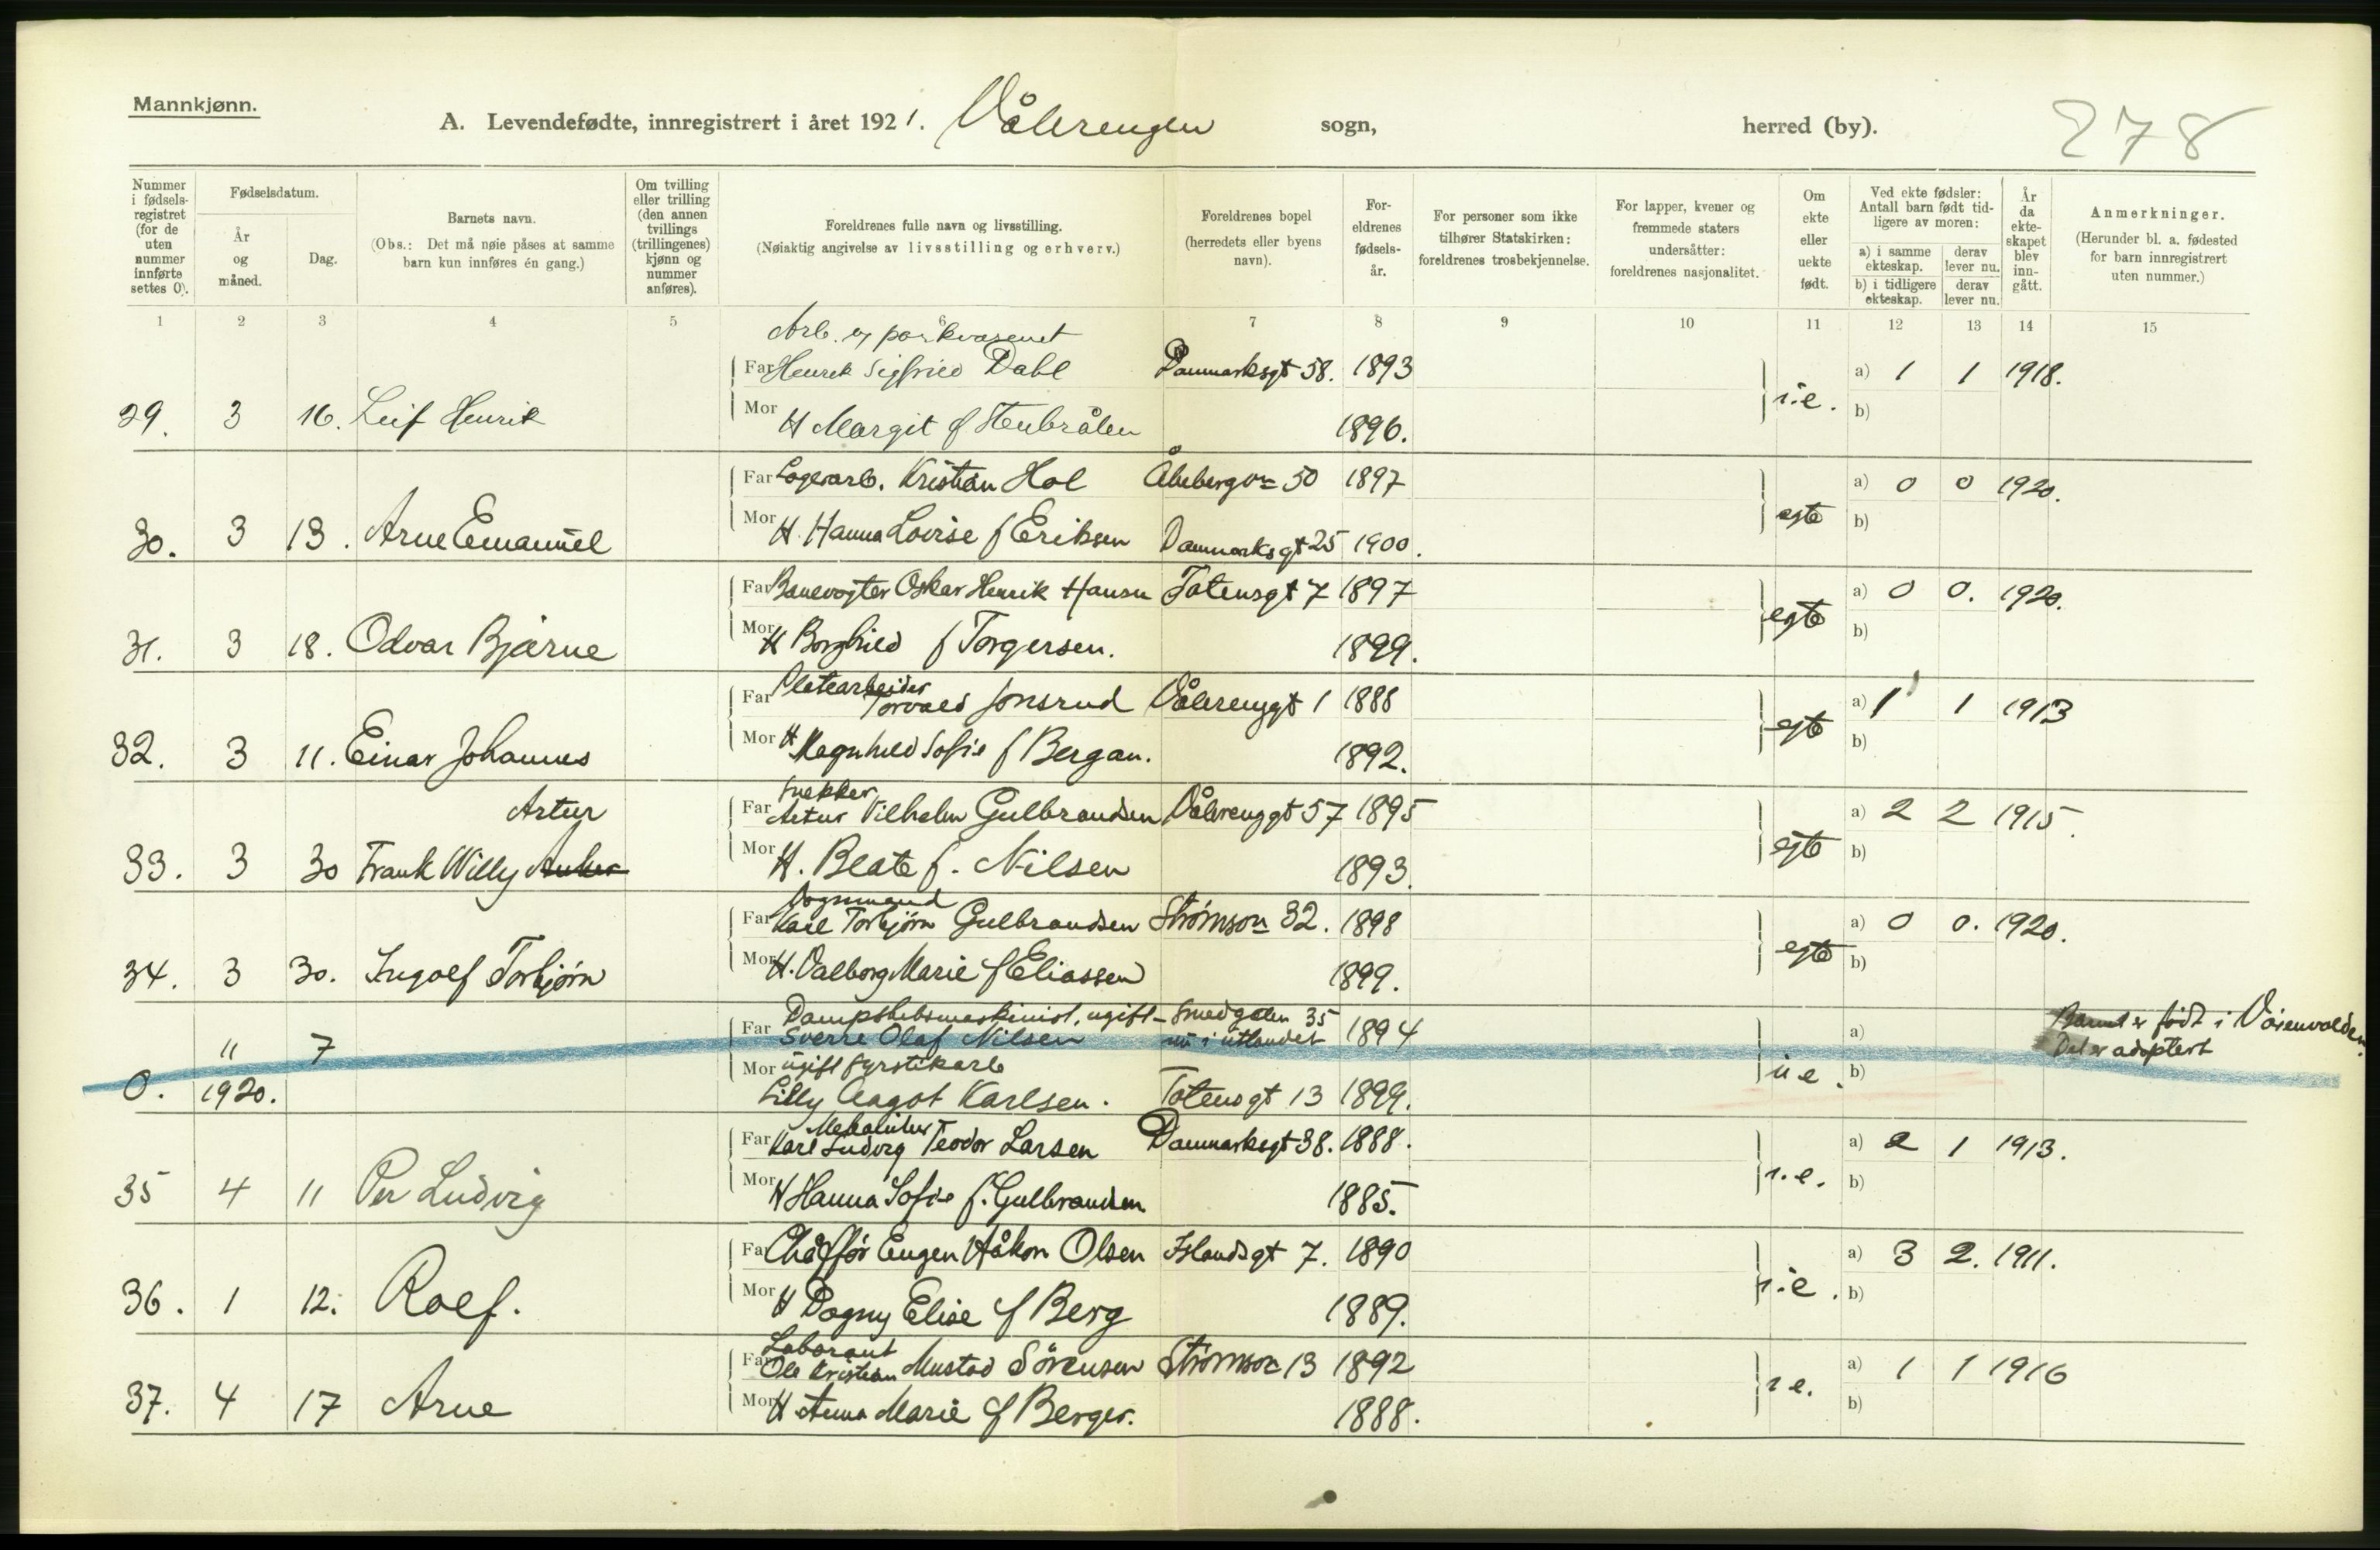 Mannkjønn.
A. Levendefødte, innregistrert i året 1921. Vålerengen sogn, herred (by). 278
Nummer i fødsels-registret (for de uten nummer innførte settes 0).
Fødselsdatum.
År og måned.
Dag.
Barnets navn.
(Obs.: Det må nøie påses at samme barn kun innføres én gang.)
Om tvilling eller trilling (den annen tvillings (trillingenes) kjønn og nummer anføres).
Foreldrenes fulle navn og livsstilling.
(Nøiaktig angivelse av livsstilling og erhverv.)
Foreldrenes bopel (herredets eller byens navn).
For-eldrenes fødsels-år.
For personer som ikke tilhører Statskirken: foreldrenes trosbekjennelse.
For lapper, kvener og fremmede staters undersåtter: foreldrenes nasjonalitet.
Om ekte eller uekte født.
Ved ekte fødsler: Antall barn født tid-ligere av moren:
a) i samme ekteskap. derav lever nu.
b) i tidligere ekteskap. derav lever nu.
År da ekte-skapet blev inn-gått.
Anmerkninger.
(Herunder bl. a. fødested for barn innregistrert uten nummer.)
1 2 3 4 5 6 7 8 9 10 11 12 13 14 15
Arb. v parkvæsenet
Far Henrik Sigfried Dahl Danmarksgt 58. 1893 a) 1 1 1918.
29. 3 16. Leif Henrik Mor H Margit f Stenbråten 1896. i.e. b)
Far Lagerarb. Kristian Hol Åkebergvn 50 1897 a) 0 0 1920.
30. 3 13. Arne Emanuel Mor H. Hanna Lovise f Eriksen Danmarksgt 25 1900. egte b)
Far Banevogter Oskar Henrik Hansen Totensgt 7 1897 a) 0 0. 1920.
31. 3 18. Odvar Bjarne Mor H Borghild f Torgersen. 1899. egte b)
Platearbeider
Far Torvald Jonsrud Vålerenggt 1 1888 a) 1 1 1913
32. 3 11. Einar Johannes Mor H Ragnhild Sofie f Bergan. 1892. egte b)
Snekker
Artur Far Artur Vilhelm Gulbrandsen Vålerenggt 57 1895 a) 2 2 1915.
33. 3 30 Frank Willy Anker Mor H. Beate f. Nilsen 1893. egte b)
Vognmand
Far Karl Torbjørn Gulbrandsen Strømsvn 32. 1898 a) 0 0. 1920.
34. 3 30. Ingolf Torbjørn Mor H. Valborg Marie f Eliassen 1899. egte b)
Dampskibsmaskinist, ugift Smedgaten 35 Barnet er født i Vøienvolden.
11 7 Far Sverre Olaf Nilsen nu i utlandet 1894 a) Det er adoptert
Mor ugift fyrstikarb
0. 1920. Lilly Aagot Karlsen. Totensgt 13 1899. u.e. b)
Far Karl Ludvig Teodor Larsen Danmarksgt 38. 1888. a) 2 1 1913.
35 4 11 Per Ludvig Mor H Hanna Sofie f. Gulbrandsen 1885. i.e. b)
Far Chåffør Eugen Håkon Olsen Islandsgt 7. 1890 a) 3 2. 1911.
36. 1 12. Rolf. Mor H Dagny Elise f Berg 1889. i.e. b)
Laborant
Far Ole Kristian Mustad Sørensen Strømsvn 13 1892 a) 1 1 1916
37. 4 17 Arne Mor H Anna Marie f Berger. 1888. i e. b)